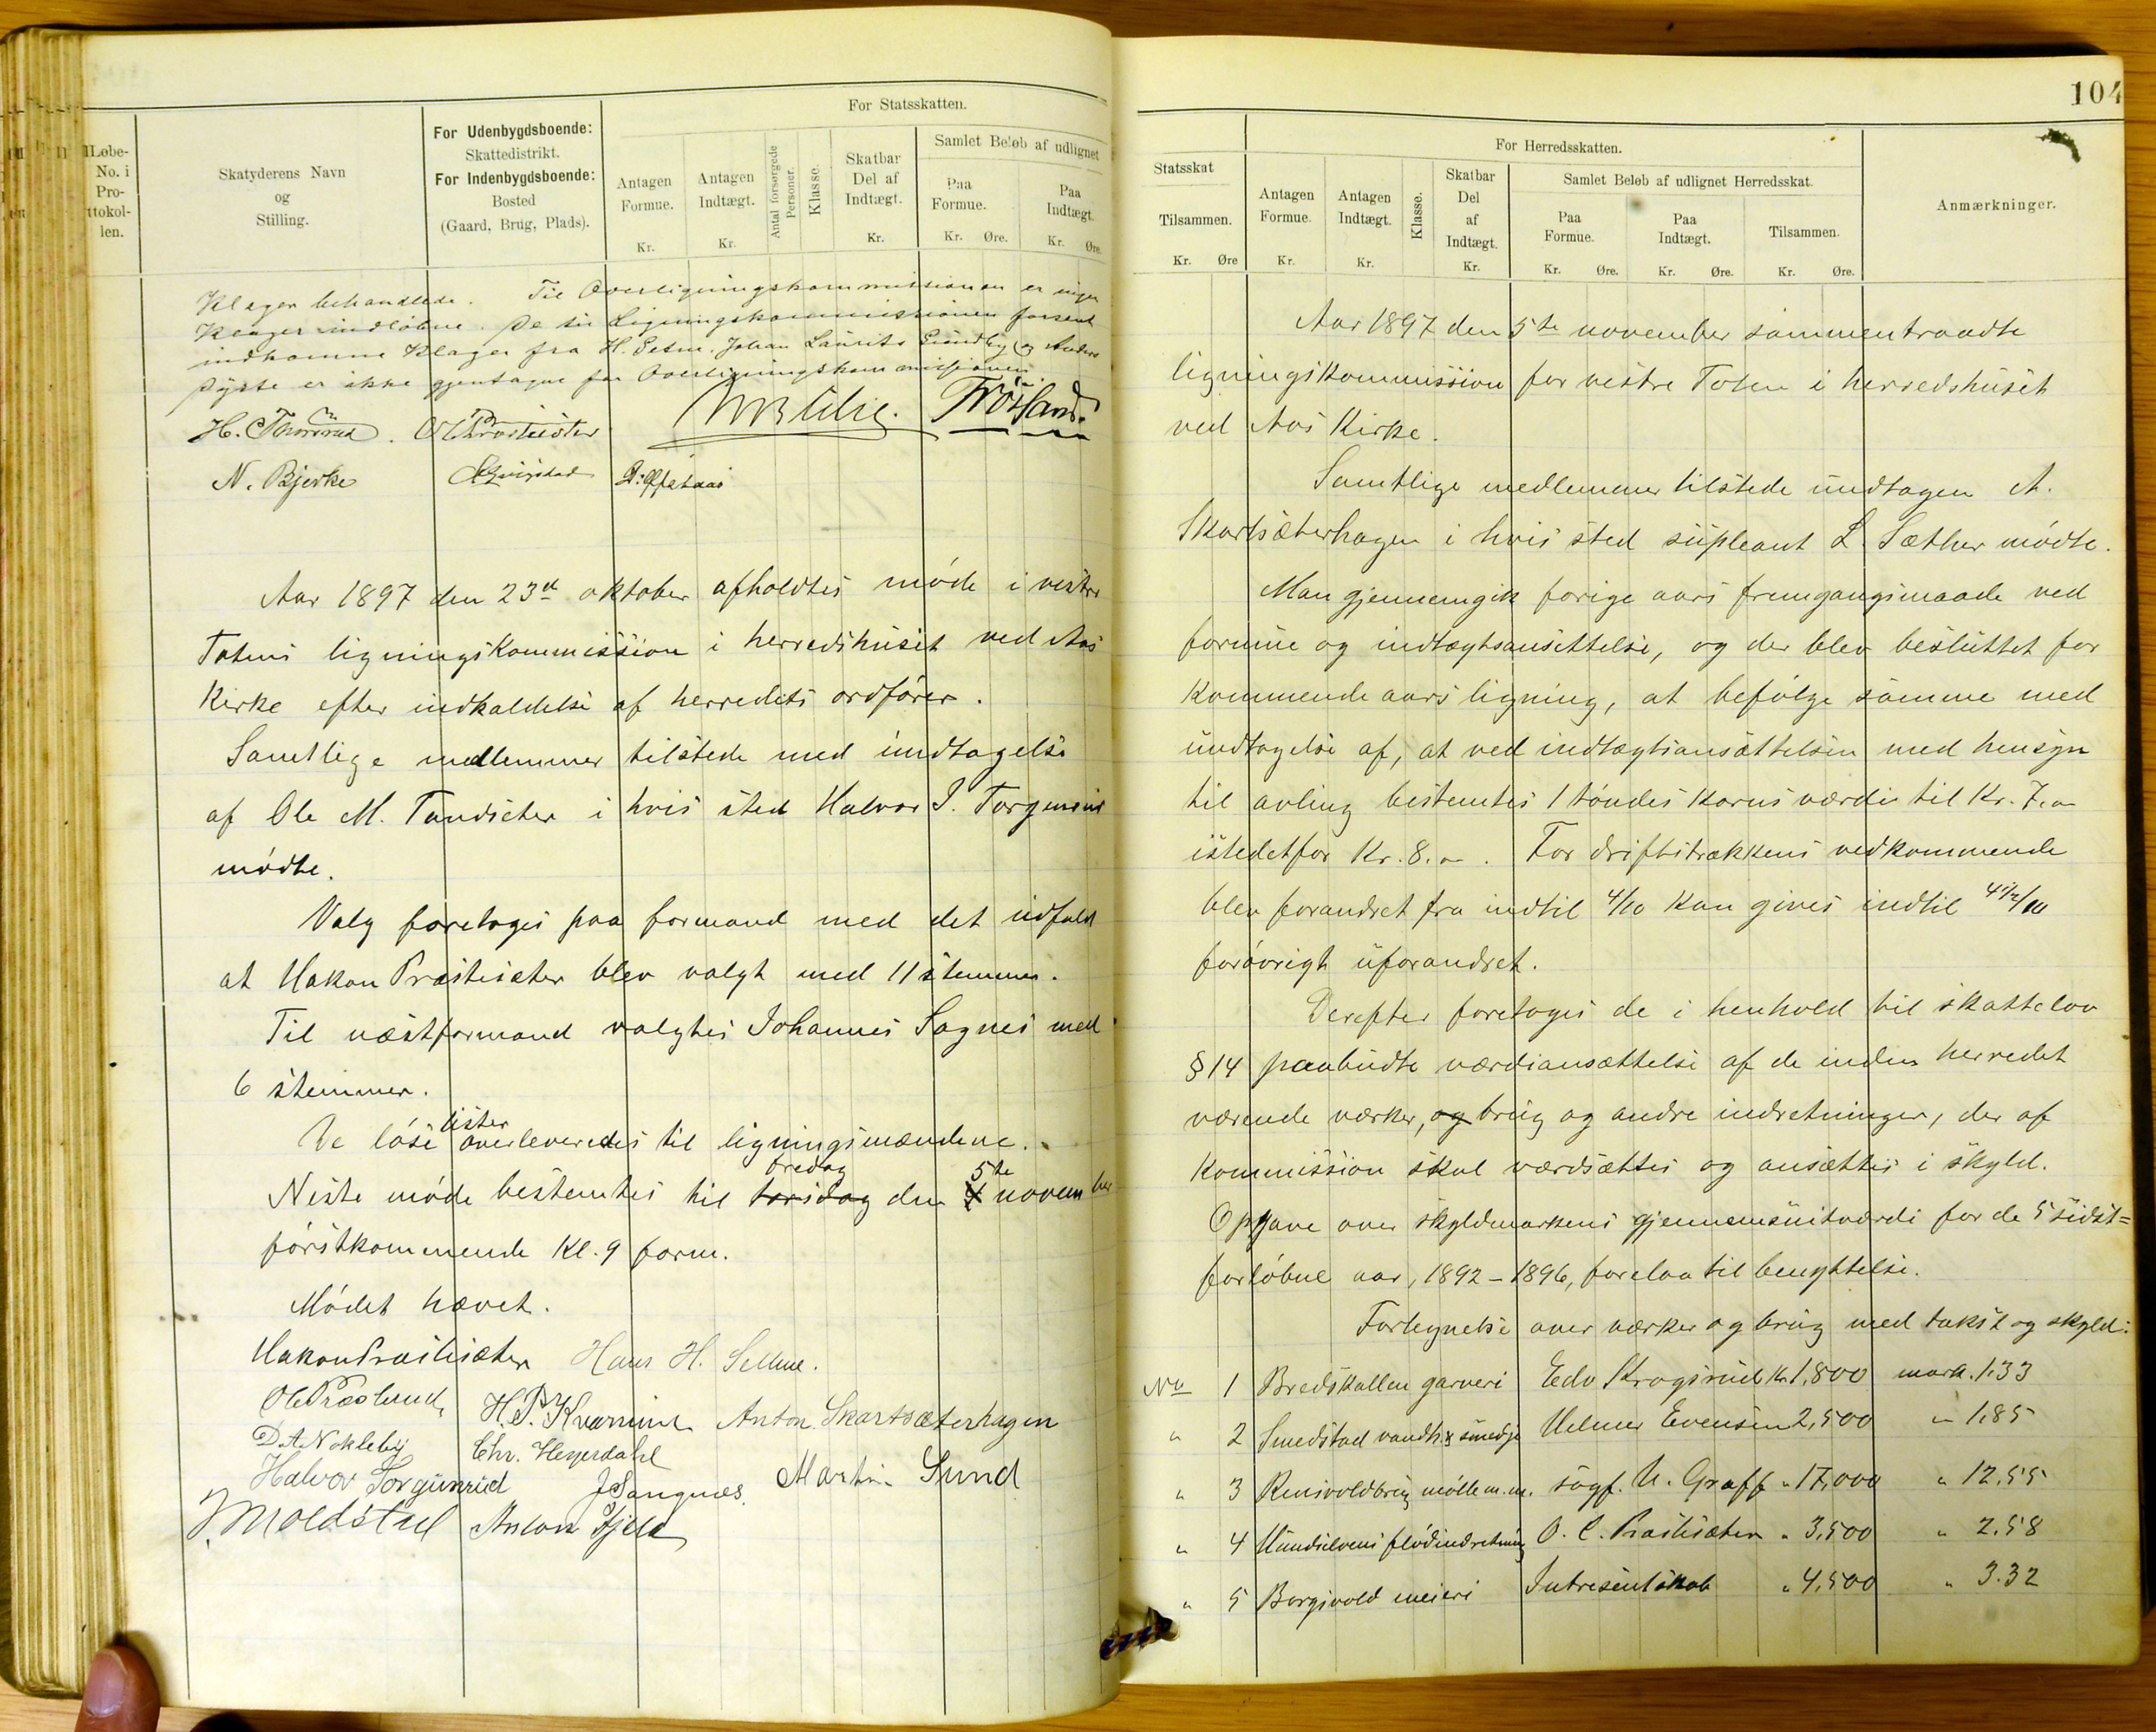 Løbe-
No. i
Pro-
tokol-
len.
Skatyderens Navn
og
Stilling.
For Udenbygdsboende:
Skattedistrikt.
For Indenbygdsboende:
Bosted
(Gaard, Brug, Plads).
For Statsskatten.
Antagen
Formue.
Kr.
Antagen
Indtægt.
Kr.
Antal forsørgede
Personer.
Klasse.
Skatbar
Del af
Indtægt.
Kr.
Samlet Beløb af udlignet
Paa
Formue.
Kr. Øre.
Paa
Indtægt.
Kr. Øre.
Klager behandlede. Til Overligningskommissionen er ingen
Klager indløbne. De til Ligningskommissionen forsent
indkomne Klager fra H. Johan Laurits Sundby og Anders
er ikke gjentagne for Overligningskommissionen.
H.
N. Bjerke
Aar 1897 den 23de oktober afholdtes møde i vestre
Totens ligningskommission i herredshuset ved Aas
Kirke efter indkaldelse af herredets ordfører.
Samtlige medlemmer tilstede med undtagelse
af Ole M. Tandseter i hvis sted Halvor J. Torgunrud
mødte.
Valg foretoges paa formand med det udfald
at Hakon Præstesæter blev valgt med 11 stemmer.
Til næstformand valgtes Johannes Sagnes med
6 stemmer.
De løse lister overleveredes til ligningsmændene.
Neste møde bestemtes til torsdag fredag den 4 5te november
førstkommende Kl. 9 form.
Mødet hævet.
Hakon Præstesæter Hans H. Sellne.
Ole Præslund, H. P. Kvarnum Anton Skartsæterhagen
D. A. Nøkleby Chr. Heyerdahl
Halvor Torgunrud J Sangnes. Martin Sund
J. Moldstad Anton Fjeld
104
Statsskat
Tilsammen.
Kr. Øre
For Herredsskatten.
Antagen
Formue.
Kr.
Antagen
Indtægt.
Kr.
Klasse.
Skatbar
Del
af
Indtægt.
Kr.
Samlet Beløb af udlignet Herredsskat.
Paa
Formue.
Kr. Øre.
Paa
Indtægt.
Kr. Øre.
Tilsammen.
Kr. Øre.
Anmærkninger.
Aar 1897 den 5te november sammentraadte
ligningskommission for vestre Toten i herredshuset
ved Aas Kirke.
Samtlige medlemmer tilstede undtagen A.
Skartsæterhagen i hvis sted supleant L. Sæther mødte.
Man gjennemgik forige aars fremgangsmaade ved
formue og indtægtsansettelse, og der blev besluttet for
kommende aars ligning, at befølge samme med
undtagelse af, at ved indtægtsansættelsen med hensyn
til avling bestemtes 1 tøndes korns værdi til Kr. 7.-
istedetfor Kr. 8.-. For driftstrækkens vedkommende
blev forandret fra indtil 4/10 kan gives indtil 4½/10
forøvrigt uforandret.
Derefter foretoges de i henhold til skattelov
§ 14 paabudte værdiansættelse af de inden herredet
værende værker, og brug og andre indretninger, der af
kommission skal værdsættes og ansættes i skyld.
Opgave over skyldmarkens gjennemsnitværdi for de 5 sidst=
forløbne aar, 1892-1896, forelaa til benyttelse.
Fortegnelse over værker og brug med takst og skyld:
No 1 Bredskallen garveri Edv Krogsrud Kr. 1,800 mark. 1.33
" 2 Smedstad vandh smedje Helmer Evensen 2,500 " 1,85
" 3 Reinsvoldbrug mølle m.m. sagf. H. Graff " 17,000 " 12.55
" 4 Hundselvens flødindretning O. C. Præstesæter " 3,500 " 2.58
" 5 Borgsvold meieri Intresentskab " 4,500 " 3.32